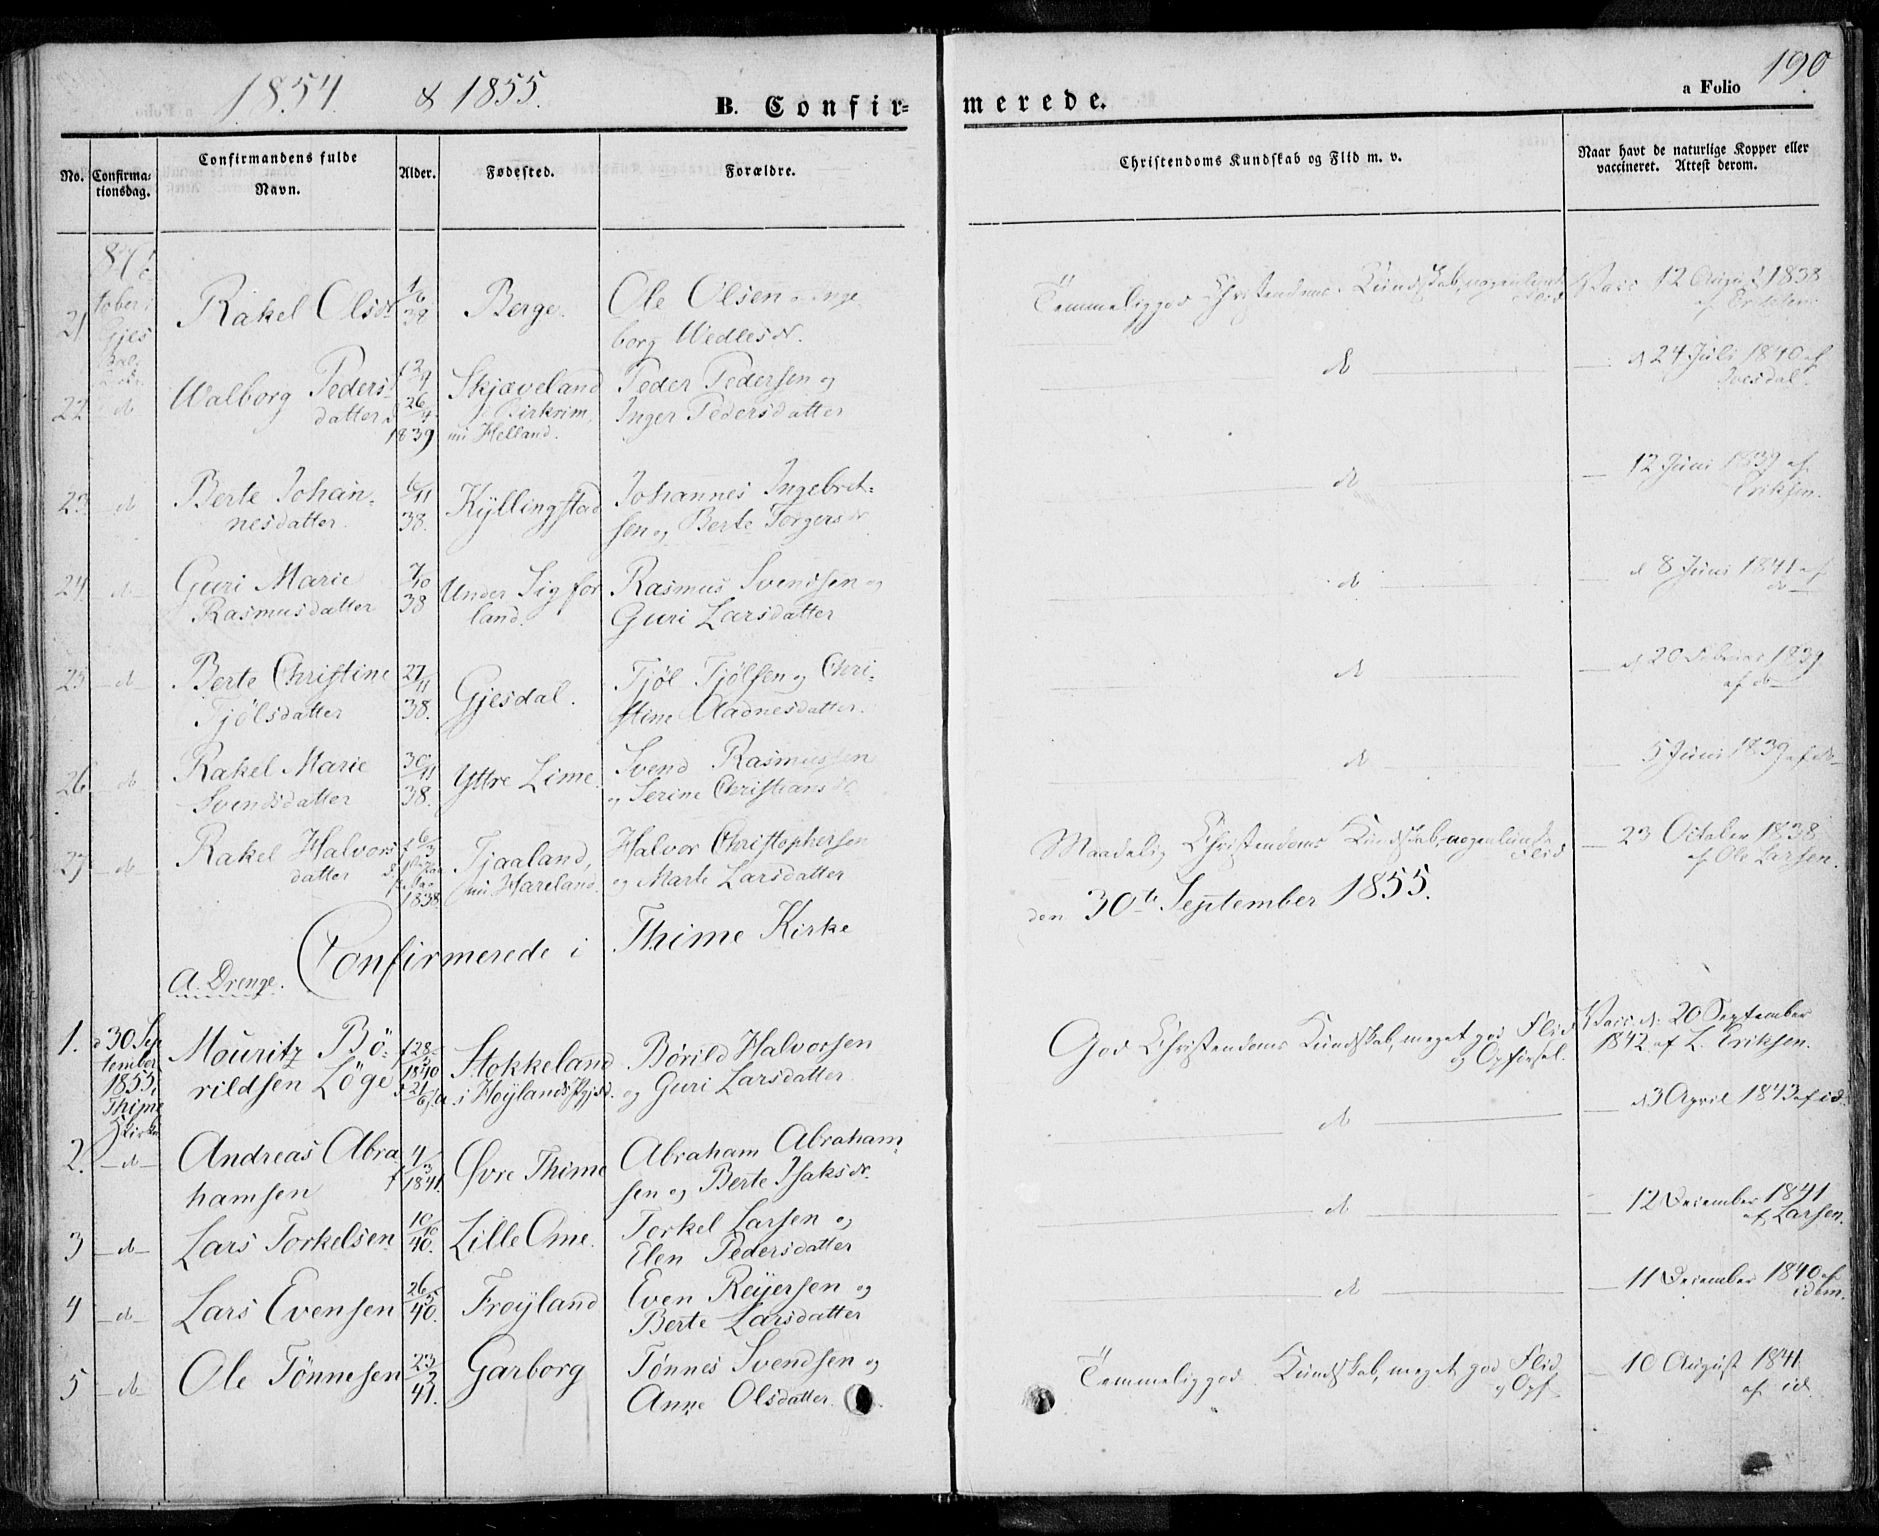 1854 & 1855.
B. Confir-
merede.
a Folio
190
No.
Confirma-
tionsdag.
Confirmandens fulde
Navn.
Alder.
Fødested.
Forældre.
Christendoms Kundskab og Flid m. v.
Naar havt de naturlige Kopper eller
vaccineret. Attest derom.
21
Rakel Olsdr
Berge.
Ole Olsen og Inge
borg Wedlesdr.
Temmelig god Christendoms Kundskab, nogenlunde
Flid
Vacc 12 August 1838
af Eriksen
22 do
Walborg Peders
datter
26/4
1839
Skjæveland
i Birkrim,
nu Helland.
Peder Pedersen og
Inger Pedersdatter
do
d 24 Juli 1840 af
Ivesdal.
23 do
Berte Johan-
nesdatter.
6/11
38.
Kyllingstad
Johannes Ingebret-
sen og Berte Torgersdr
do
12 Juni 1839 af
Eriksen.
24 do
Guri Marie
Rasmusdatter
7/10
38
Under Sigfor
land.
Rasmus Svendsen og
Guri Larsdatter
do
d 8 Juni 1841 af
do
25 do
Berte Christine
Tjølsdatter
27/11
38.
Gjesdal.
Tjøl Tjølsen og Chri-
stine Aadnesdatter.
do
d 20 Februar 1839
af do
26 do
Rakel Marie
Svendsdatter
30/11
38.
Yttre Lime.
Svend Rasmussen
og Serine Christiansdr
do
5 Juni 1839 af do
27 do
Rakel Halvors
datter
1838.
Tjaaland,
nu Hareland.
Halvor Christophersen
og Marte Larsdatter
Maadelig Christendoms Kundskab, nogenlunde
Flid
23 October 1838
af Ole Larsen.
Confirmerede i Thime Kirke
den 30te September 1855.
A. Drenge.
1.
d 30 Sep
tember
1855,
Thime
Kirke
Mouritz Bø-
rildsen Løge
f 28/5
1840
Stokkeland
i Høylands Pgjeld.
Børild Halvorsen
og Guri Larsdatter
God Christendoms Kundskab, meget god Flid
og Opførsel.
Vacc. d. 20 September
1842 af L. Eriksen.
2. do
Andreas Abra
hamsen
f 4/3
1841.
Øvre Thime
Abraham Abraham
sen og Berte Isaksdr.
do
d 3 April 1843 af id.
3 do
Lars Torkelsen
10/10
40.
Lille Ome.
Torkel Larsen og
Elen Pedersdatter
do
12 December 1841
af Larsen.
4 do
Lars Evensen
26/5
40.
Frøyland
Even Reyersen og
Berte Larsdatter
do
11 December 1840 af
idem.
5 do
Ole Tønnesen
23/3
41.
Garborg
Tønnes Svendsen og
Anne Olsdatter.
Temmelig god Kundskab, meget god Flid
og Opf
10 August 1841
af id.